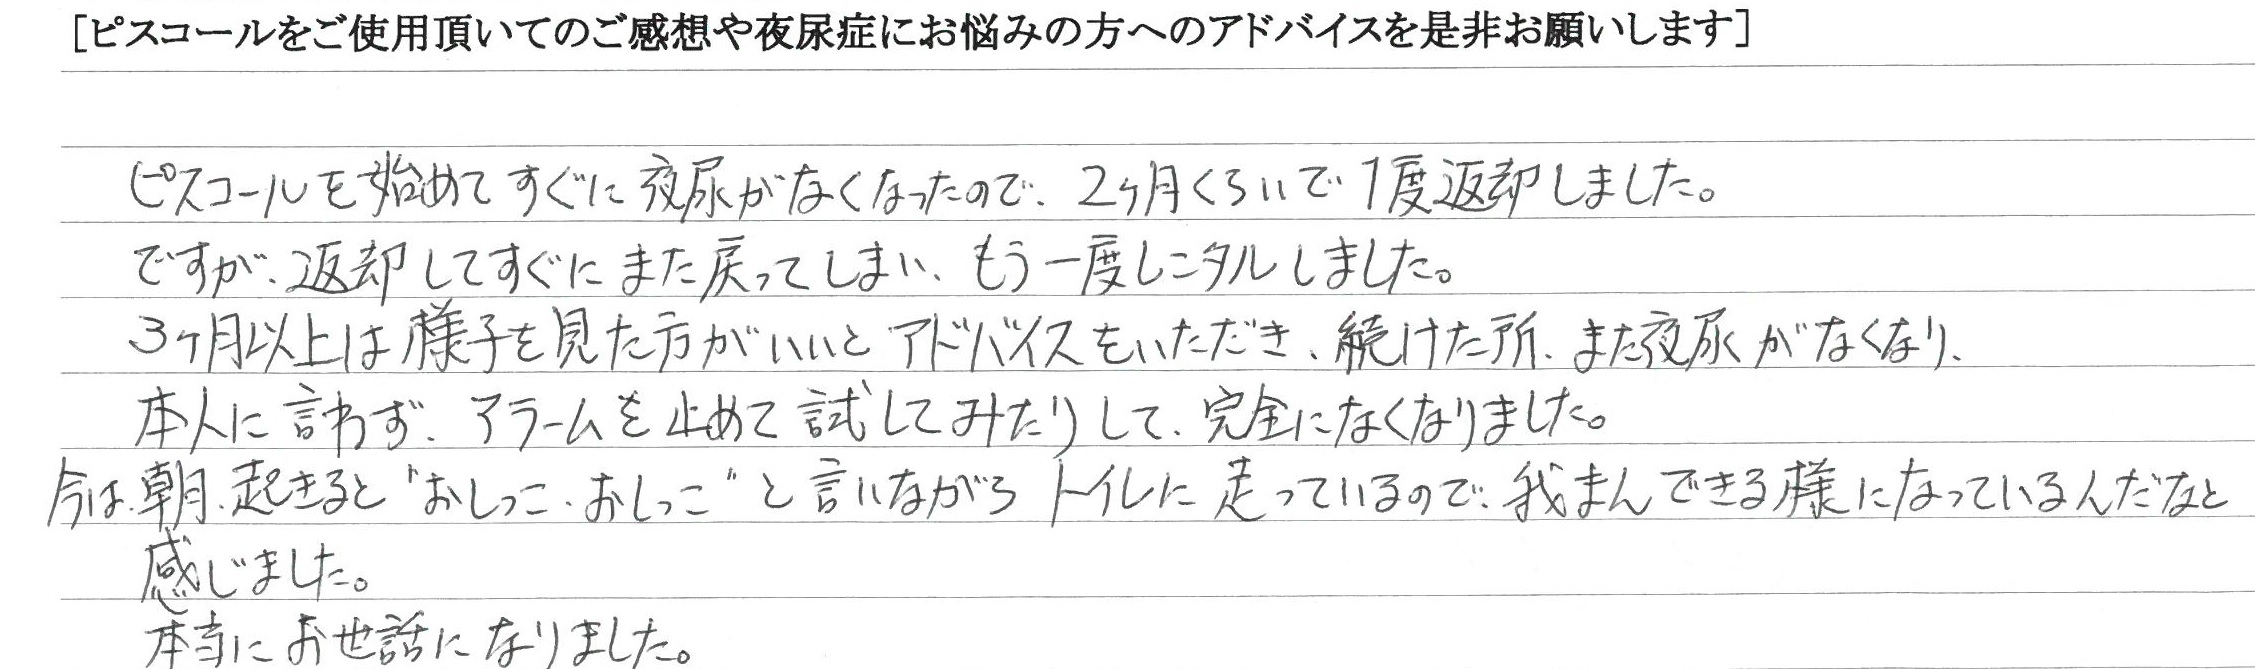 [ピスコールをご使用頂いてのご感想や夜尿症にお悩みの方へのアドバイスを是非お願いします]
ピスコールを始めてすぐに夜尿がなくなったので、2ヶ月くらいで1度返却しました。
ですが、返却してすぐにまた戻ってしまい、もう一度レンタルしました。
3ヶ月以上は様子を見た方がいいとアドバイスをいただき、続けた所、また夜尿がなくなり、
本人に言わず、アラームを止めて試してみたりして、完全になくなりました。
今は、朝、起きると"おしっこ、おしっこ"と言いながらトイレに走っているので、我まんできる様になっているんだなと
感じました。
本当にお世話になりました。